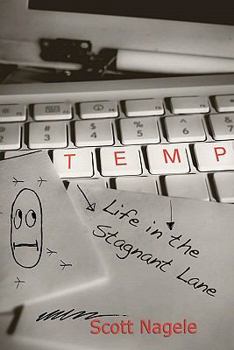 # $ % ^
2 3 4 5 6 7
TEMP
Life in the
Stagnant Lane
Scott Nagele